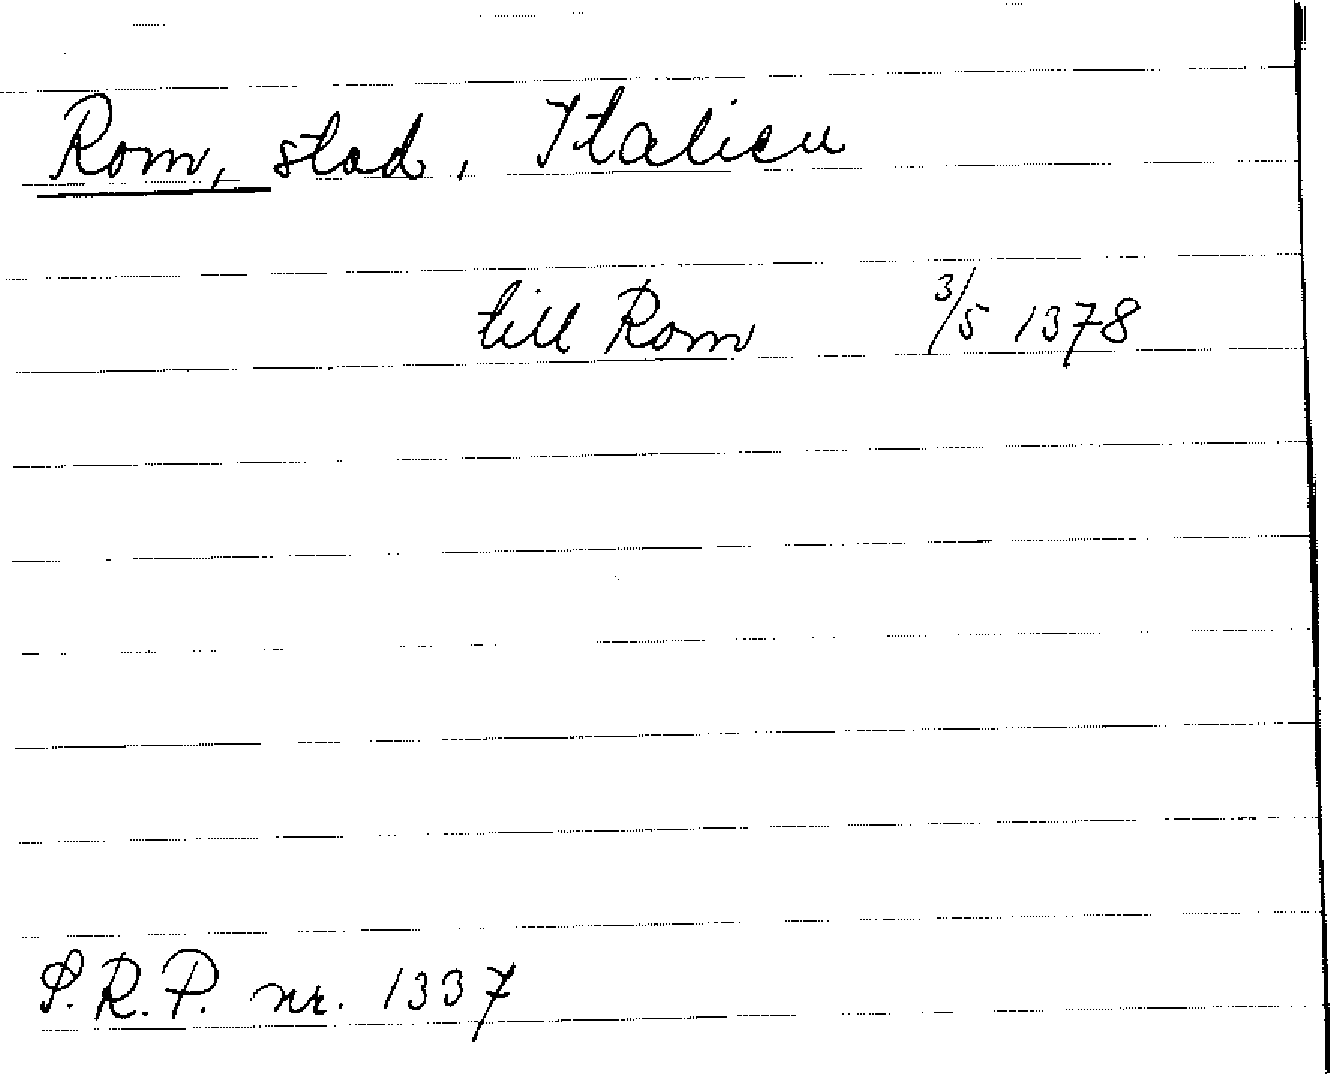 Rom, stad, Italien
till Rom 3/5 1378
S.R.P. nr. 1337